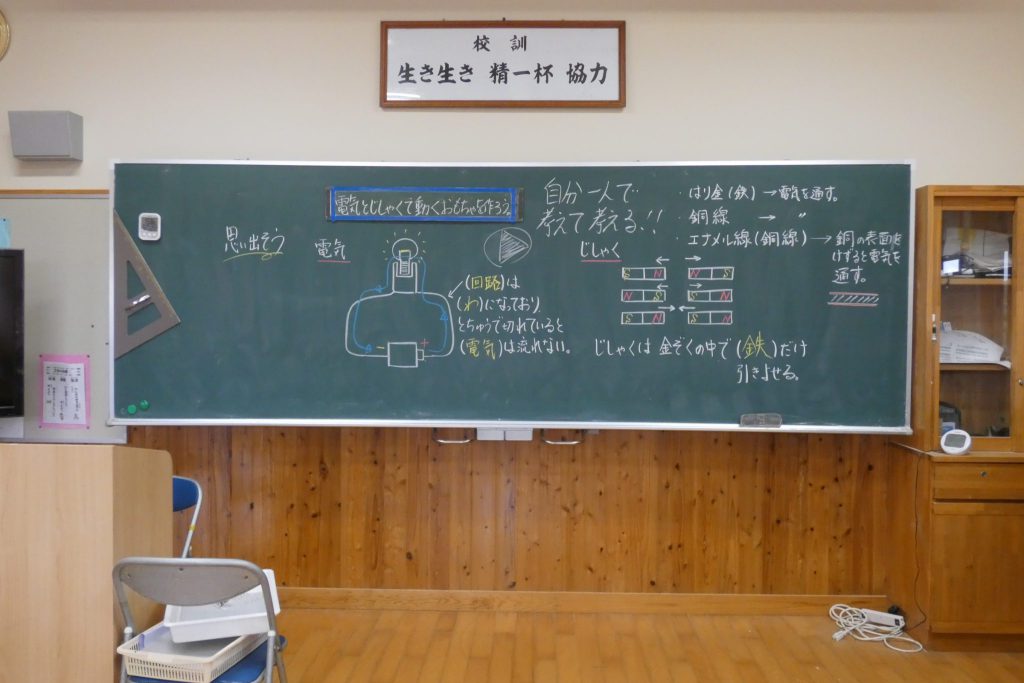 校訓
生き生き 精一杯 協力
電気とじしゃくで動くおもちゃを作ろう
思い出そう
電気
(回路)は
(わ)になっており、
とちゅうで切れていると
(電気)は流れない。
- +
自分一人で
考えて考える!!
じしゃく
S N N S
N S S N
S N N S
じしゃくは 金ぞくの中で(鉄)だけ
引きよせる。
・はり金(鉄)→電気を通す。
・銅線 → 〃
・エナメル線(銅線)→銅の表面を
けずると電気を
通す。